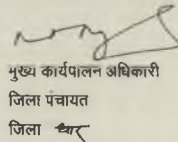 मुख्य कार्यपालन अधिकारी
जिला पंचायत
जिला धार